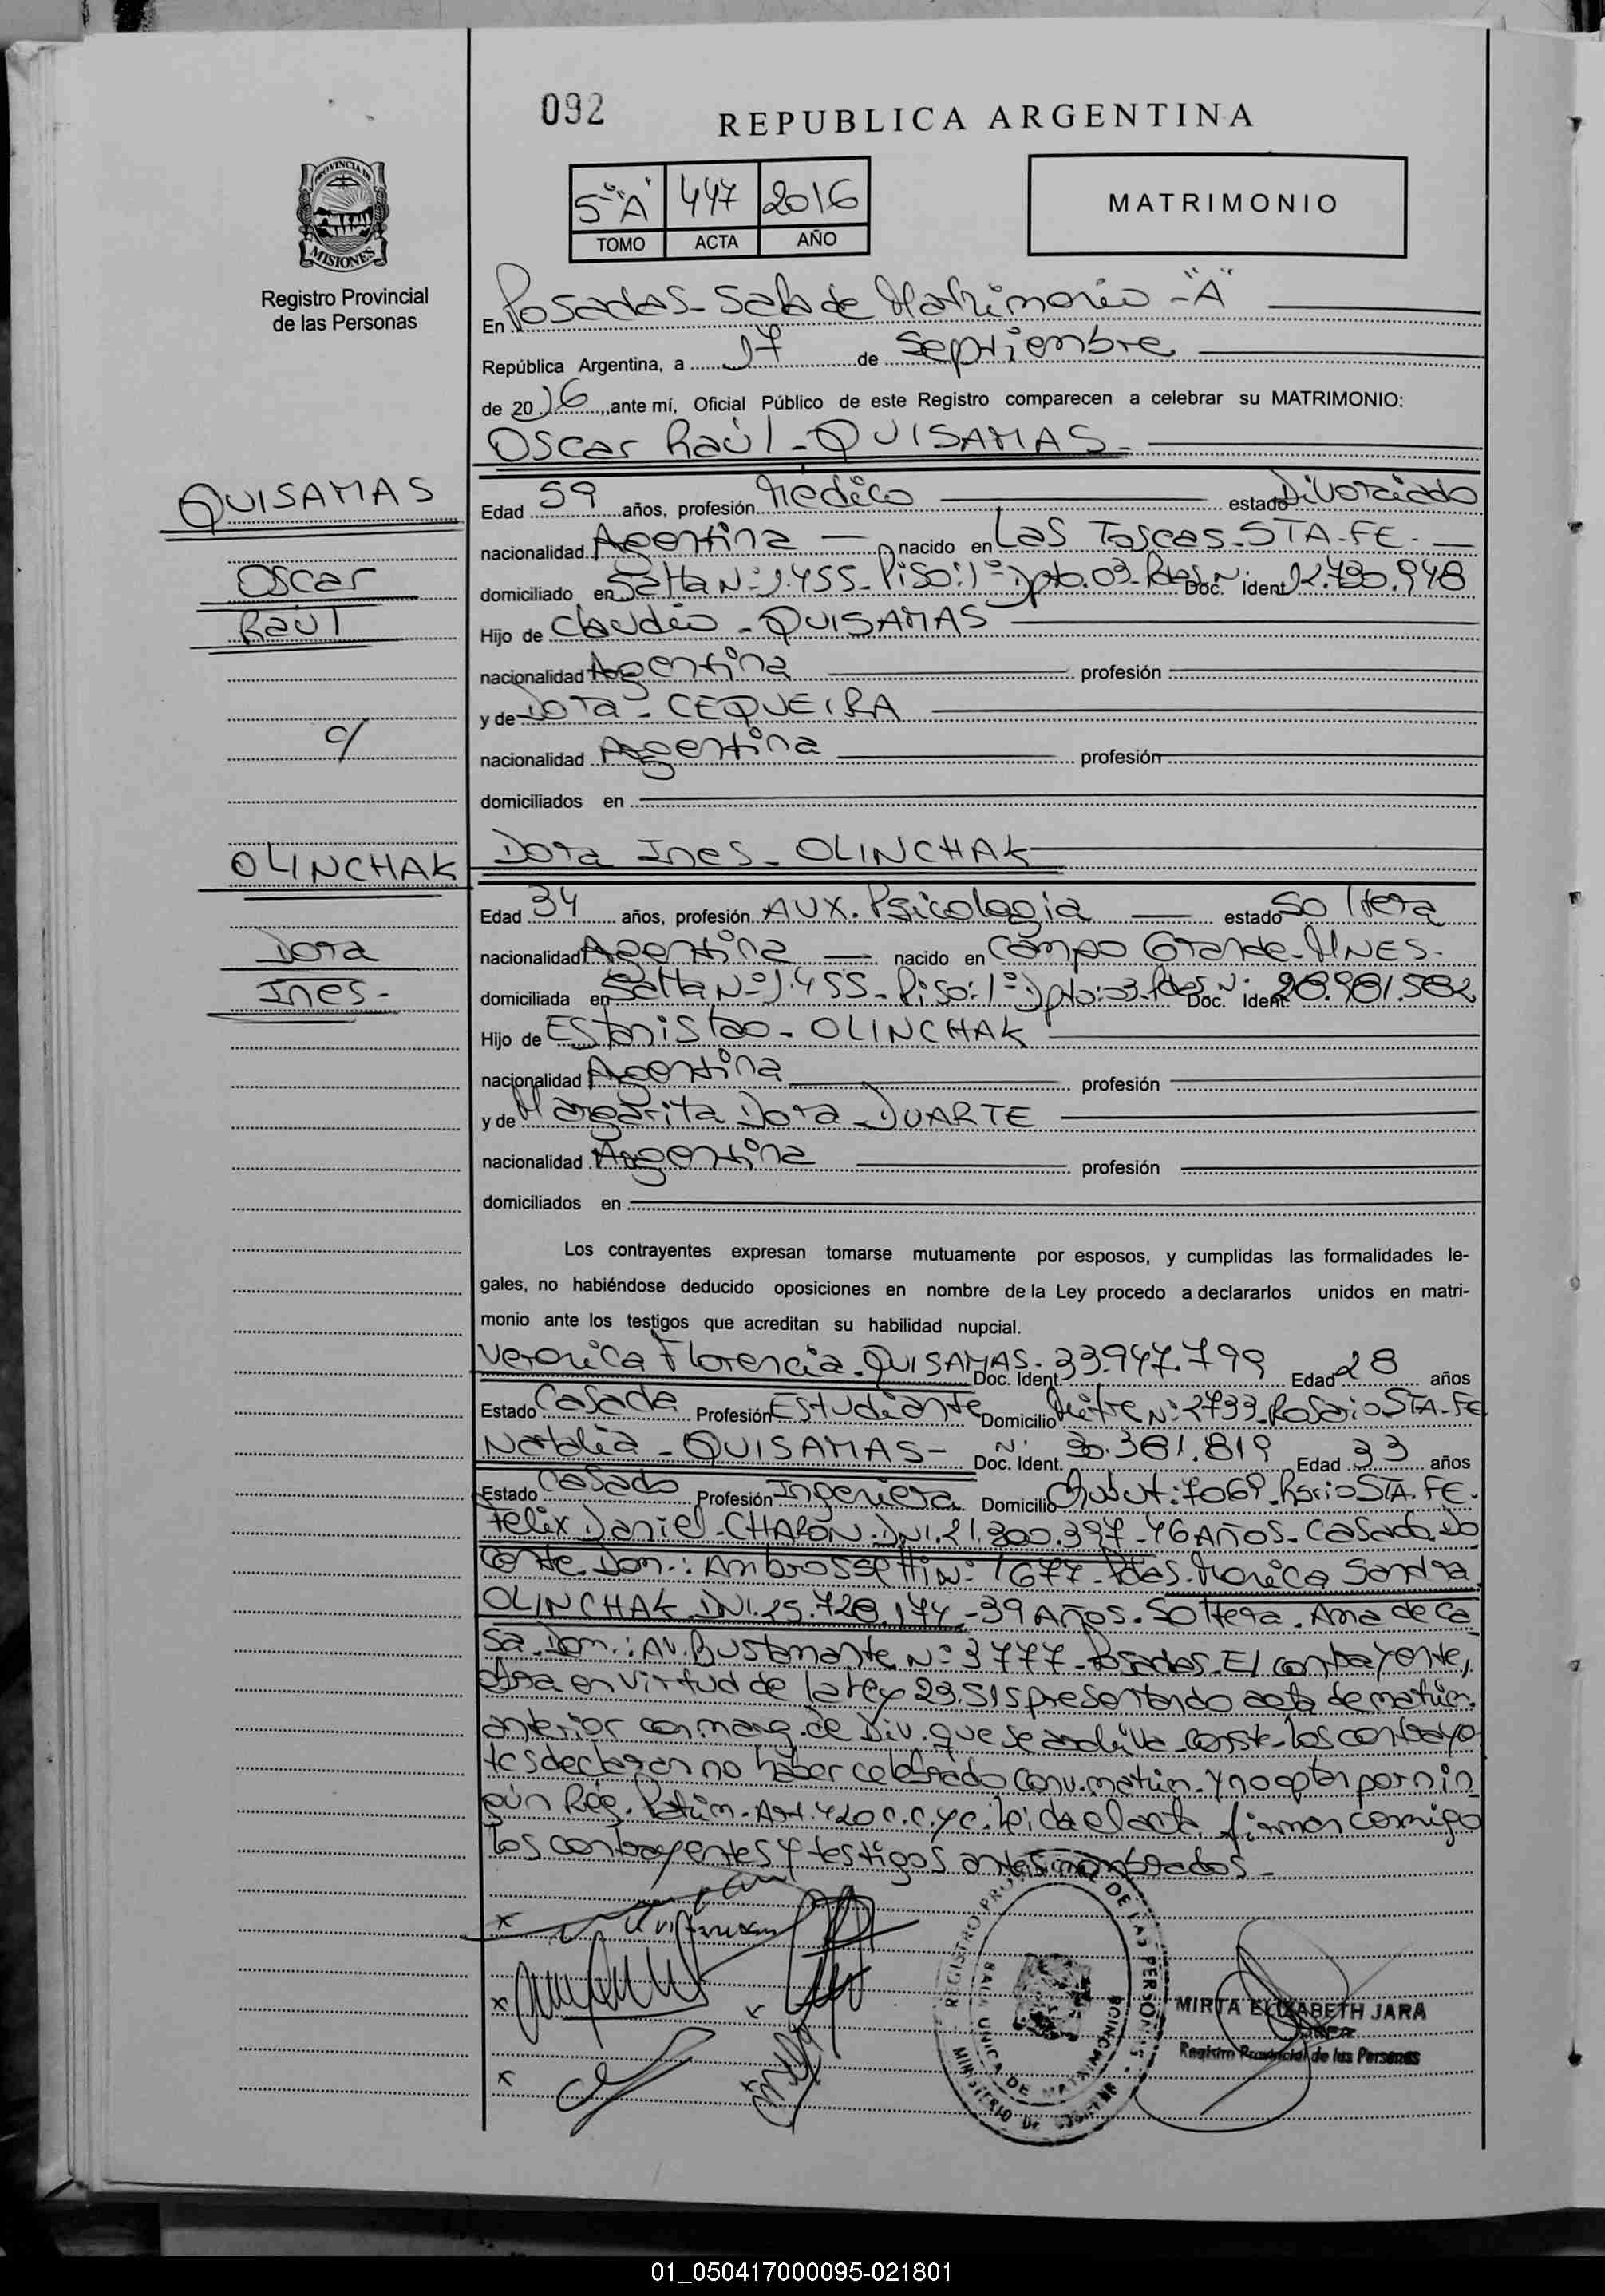 092
REPUBLICA ARGENTINA
5-"A" 447 2016
TOMO ACTA AÑO
MATRIMONIO
PROVINCIA DE
MISIONES
Registro Provincial
de las Personas
En Posadas - Sala de Matrimonio - "A"
República Argentina, a 17 de Septiembre
de 2016, ante mí, Oficial Público de este Registro comparecen a celebrar su MATRIMONIO:
Oscar Raúl - QUISAMAS -
QUISAMAS
Oscar
Raúl
c/
OLINCHAK
Dora
Ines -
Edad 59 años, profesión Medico estado Divorciado
nacionalidad Argentina nacido en Las Toscas - STA - FE -
domiciliado en Salta Nº 1.455 - Piso: 1º Dpto. 03 - Pdas Nº Doc. Ident. 12.730.948
Hijo de Claudio - QUISAMAS
nacionalidad Argentina profesión
y de Dora - CEQUEIRA
nacionalidad Argentina profesión
domiciliados en
Dora Ines - OLINCHAK
Edad 34 años, profesión AUX. Psicologia estado Soltera
nacionalidad Argentina nacido en Campo Grande - MNES -
domiciliada en Salta Nº 1.455 - Piso: 1º Dpto: 03 - Pdas Nº Doc. Ident. 28.981.582
Hijo de Estanislao - OLINCHAK
nacionalidad Argentina profesión
y de Margarita Dora DUARTE
nacionalidad Argentina profesión
domiciliados en
Los contrayentes expresan tomarse mutuamente por esposos, y cumplidas las formalidades le-
gales, no habiéndose deducido oposiciones en nombre de la Ley procedo a declararlos unidos en matri-
monio ante los testigos que acreditan su habilidad nupcial.
Veronica Florencia - QUISAMAS - Doc. Ident. 33.947.799 Edad 28 años
Estado Casada Profesión Estudiante Domicilio Mitre Nº 2733 - Rosario STA - FE
Natalia - QUISAMAS - Nº Doc. Ident. 30.381.819 Edad 33 años
Estado Casado Profesión Ingeniera Domicilio Chubut: 7069 - Rsrio STA. FE -
Felix Daniel - CHAPON - DNI. 21.300.397 - 46 Años - Casado, Do
cente. Dom.: Ambrossetti Nº 1677 - Pdas - Monica Sandra
OLINCHAK - DNI. 25.728.174 - 39 Años - Soltera. Ama de Ca
sa. Dom.: AV. Bustamante Nº 3777 - Posadas - El contrayente,
en virtud de la ley 23.515 presentando acta de matrim.
anterior con marg. de Div. que se archiva - conste - los contraye
tes declaran no haber celebrado conv. matrim. y no optan por nin
gún Rég. Patrim. - Art. 420 C.C. y C. Leida el acta, firman conmigo
los contrayentes y testigos antes nombrados -
REGISTRO PROVINCIAL DE LAS PERSONAS
SALA UNICA DE MATRIMONIOS
MINISTERIO DE GOBIERNO
MIRTA ELIZABETH JARA
JEFA
Registro Provincial de las Personas
01_050417000095-021801